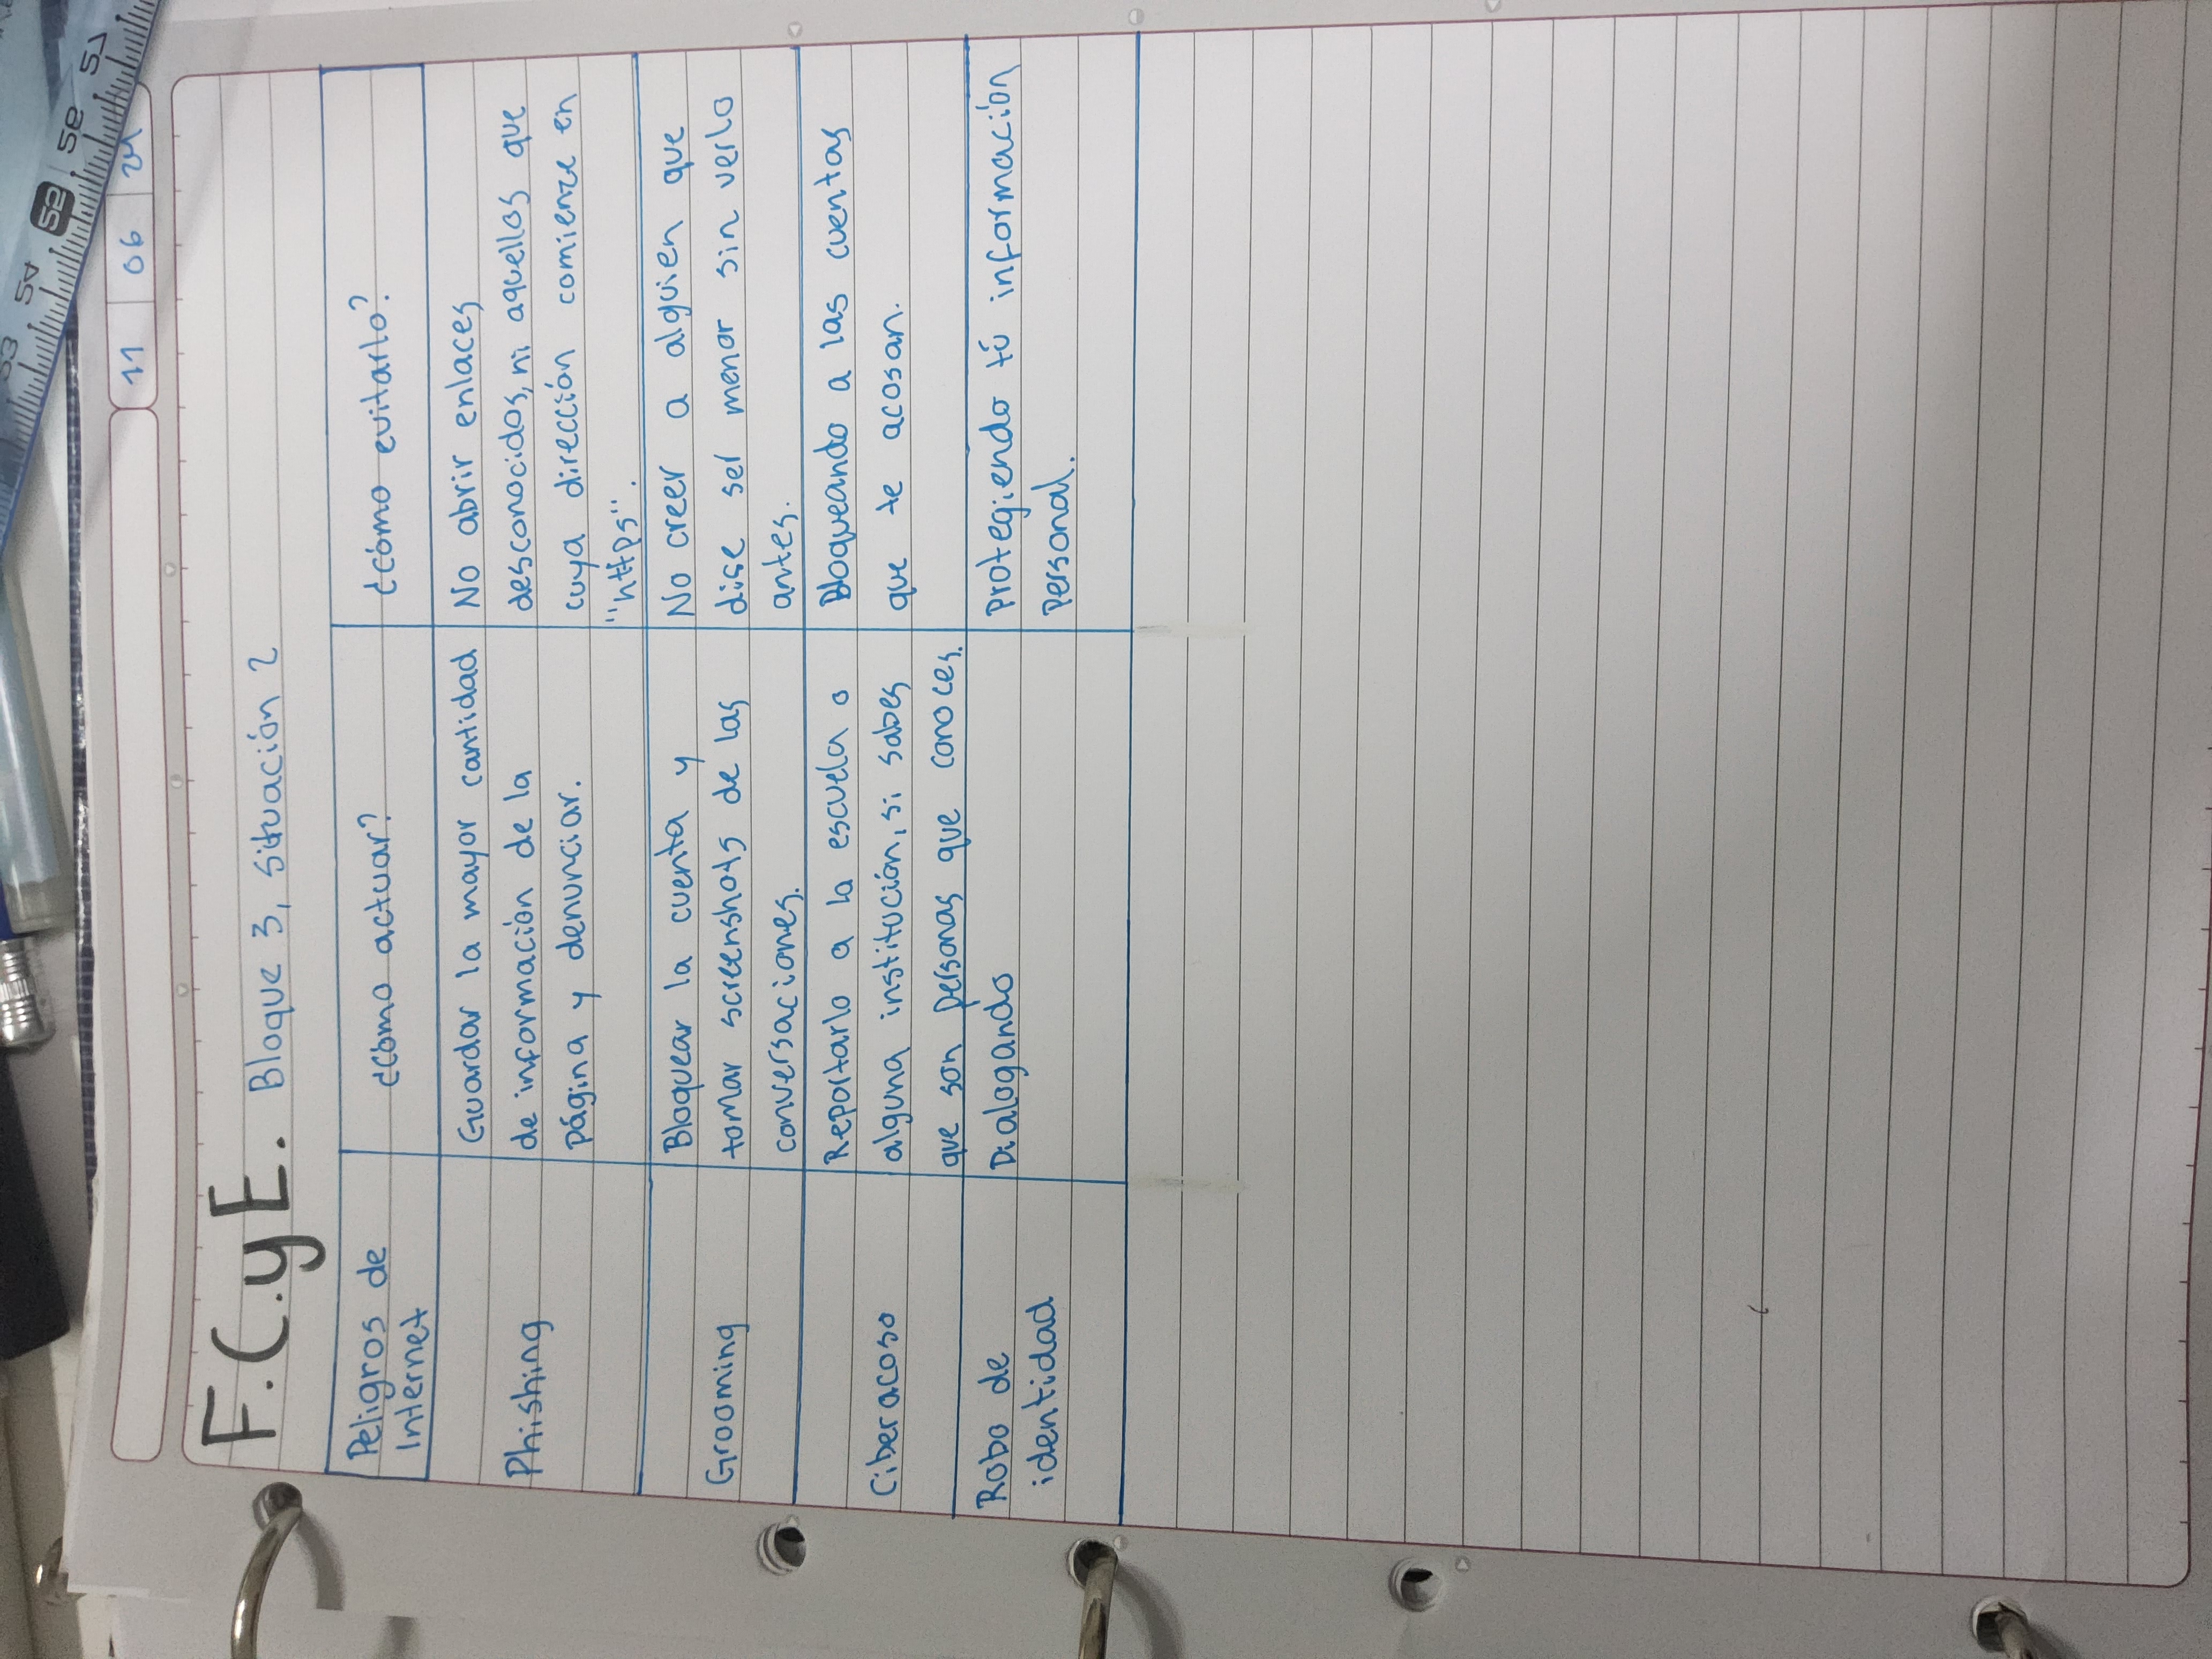 11 06 24
F.C.yE. Bloque 3, Situación 2
Peligros de
Internet
¿cómo actuar?
¿cómo evitarlo?
Phishing
Guardar la mayor cantidad
de información de la
página y denunciar.
No abrir enlaces
desconocidos, ni aquellos que
cuya dirección comienze en
"https".
Grooming
Bloquear la cuenta y
tomar screenshots de las
conversaciones.
No creer a alguien que
dise ser menor sin verlo
antes.
Ciberacoso
Reportarlo a la escuela o
alguna institución, si sabes
que son personas que conoces.
Bloqueando a las cuentas
que te acosan.
Robo de
identidad
Dialogando
Protegiendo tú información
personal.
53 54 52 52 51